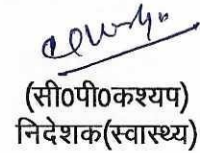 (सी0पी0कश्यप)
निदेशक(स्वास्थ्य)